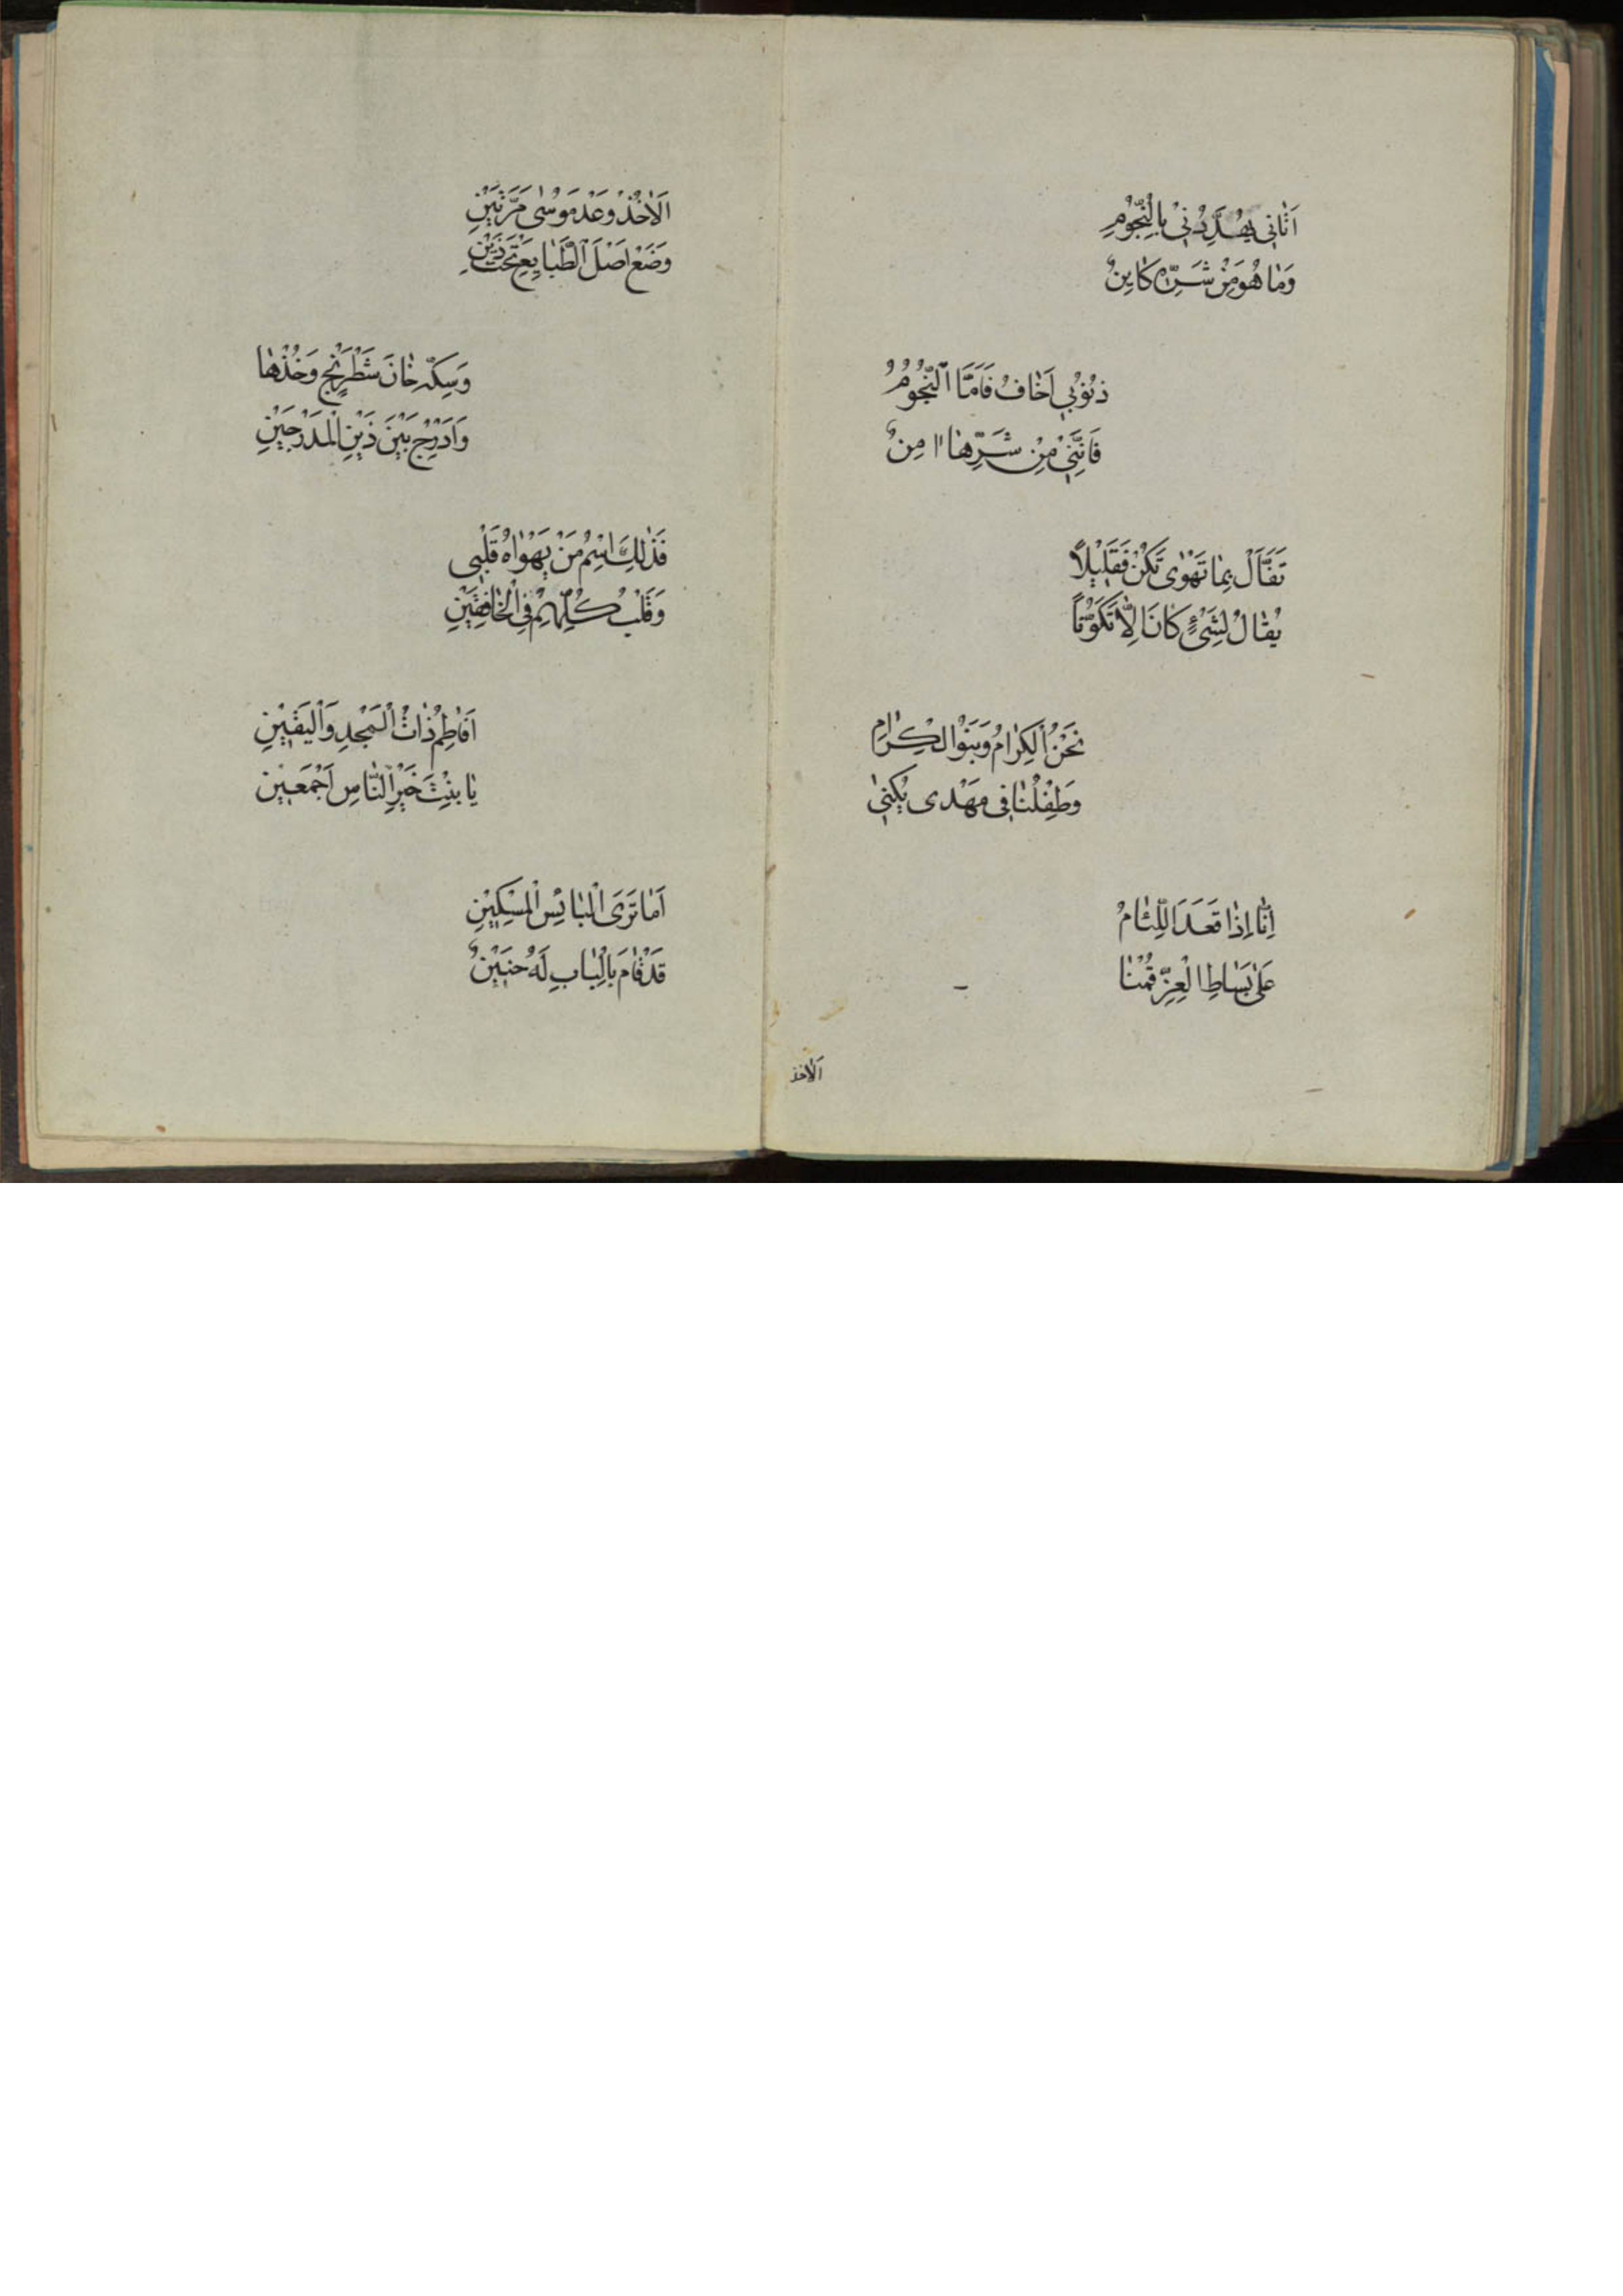 اَتٰانِي يُهَدِّدُنِيْ بِالنُّجُوْمِ
وَمٰا هُوَ مِنْ شَرِّهٖ كٰايِنٌ
ذُنُوْبِي اَخٰافُ فَاَمَّا النُّجُوْمُ
فَاِنَّنِيْ مِنْ شَرِّهٰا اٰمِنٌ
تَفَأَّلْ بِمٰا تَهْوٰى تَكُنْ فَقَلِيْلاً
يُقٰالُ لِشَيْءٍ كٰانَ اِلاّٰ تَكَوَّنٰاً
نَحْنُ الْكِرٰامُ وَبَنُوْا الْكِرٰامِ
وَطِفْلُنٰا فِى مَهْدى يُكَنّٰى
اِنّٰا اِذٰا قَعَدَ اللِّئٰامُ
عَلىٰ بَسٰاطِ الْعِزِّ قُمْنٰا
اَلاٰخذ
اَلاٰخُذْ وَعْدَ مُوْسٰى مَرَّتَيْنِ
وَضَعْ اَصْلَ الطَّبٰايِعِ تَحْتَ ذَيْنِ
وَسِكّهْ خٰانَ شَطْرَنْجٍ وَخُذْهٰا
وَاَدْرِجْ بَيْنَ ذَيْنِ الْمَدْرَجَيْنِ
فَذٰلِكَ اسْمُ مَنْ يَهْوٰاهُ قَلْبِى
وَقَلْبُ كُلِّهِمْ فِى الْخٰافِقَيْنِ
اَفٰاطِمُ ذٰاتُ الْمَجْدِ وَالْيَقِيْنِ
يٰا بِنْتَ خَيْرِ النّٰاسِ اَجْمَعِيْنِ
اَمٰا تَرَى الْبٰائِسَ الْمِسْكِيْنِ
قَدْ قٰامَ بِالْبٰابِ لَهُ حَنِيْنٌ